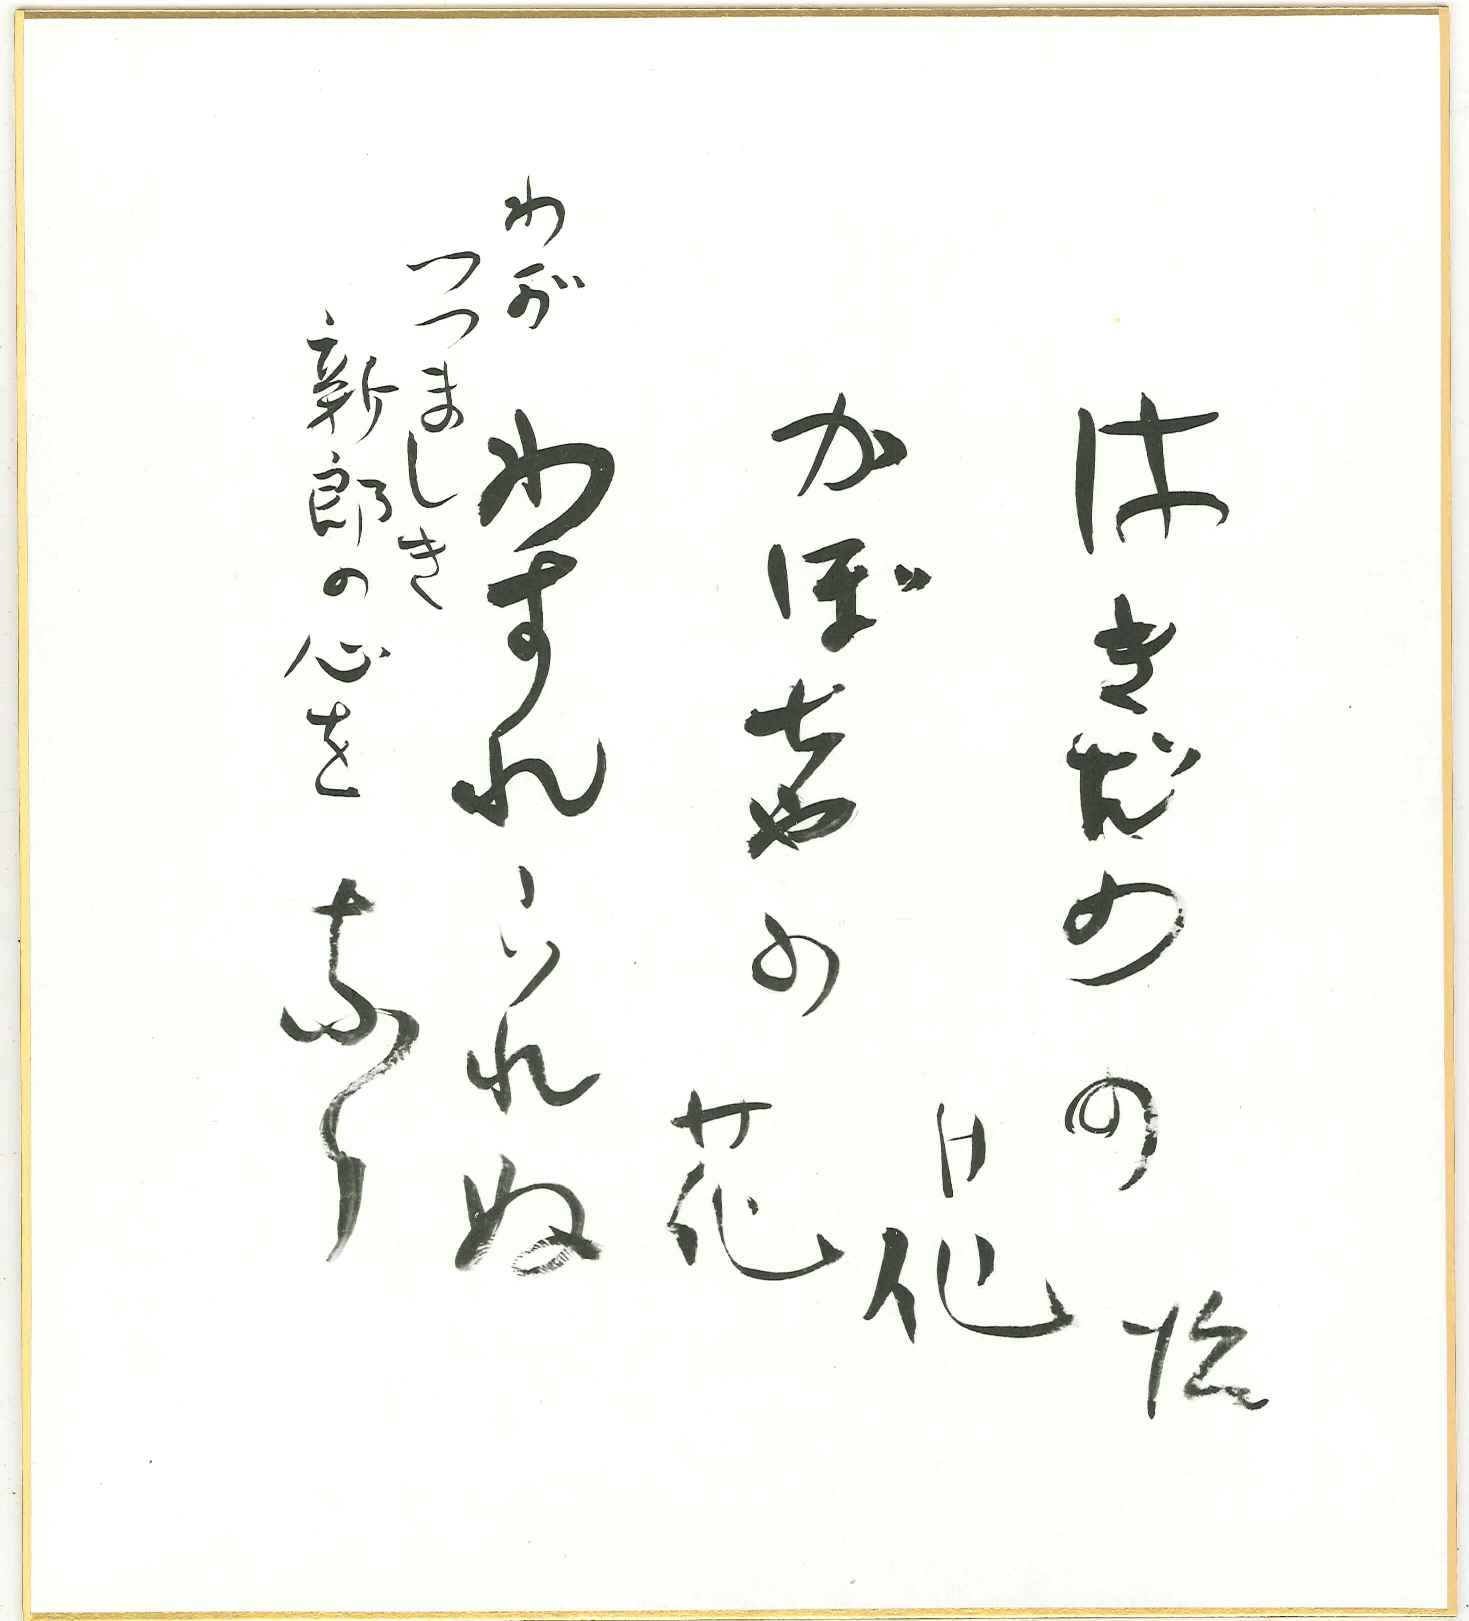 はきだめの花
かぼちやの花
わすれられぬ
わが
つつましき
新郎の心を